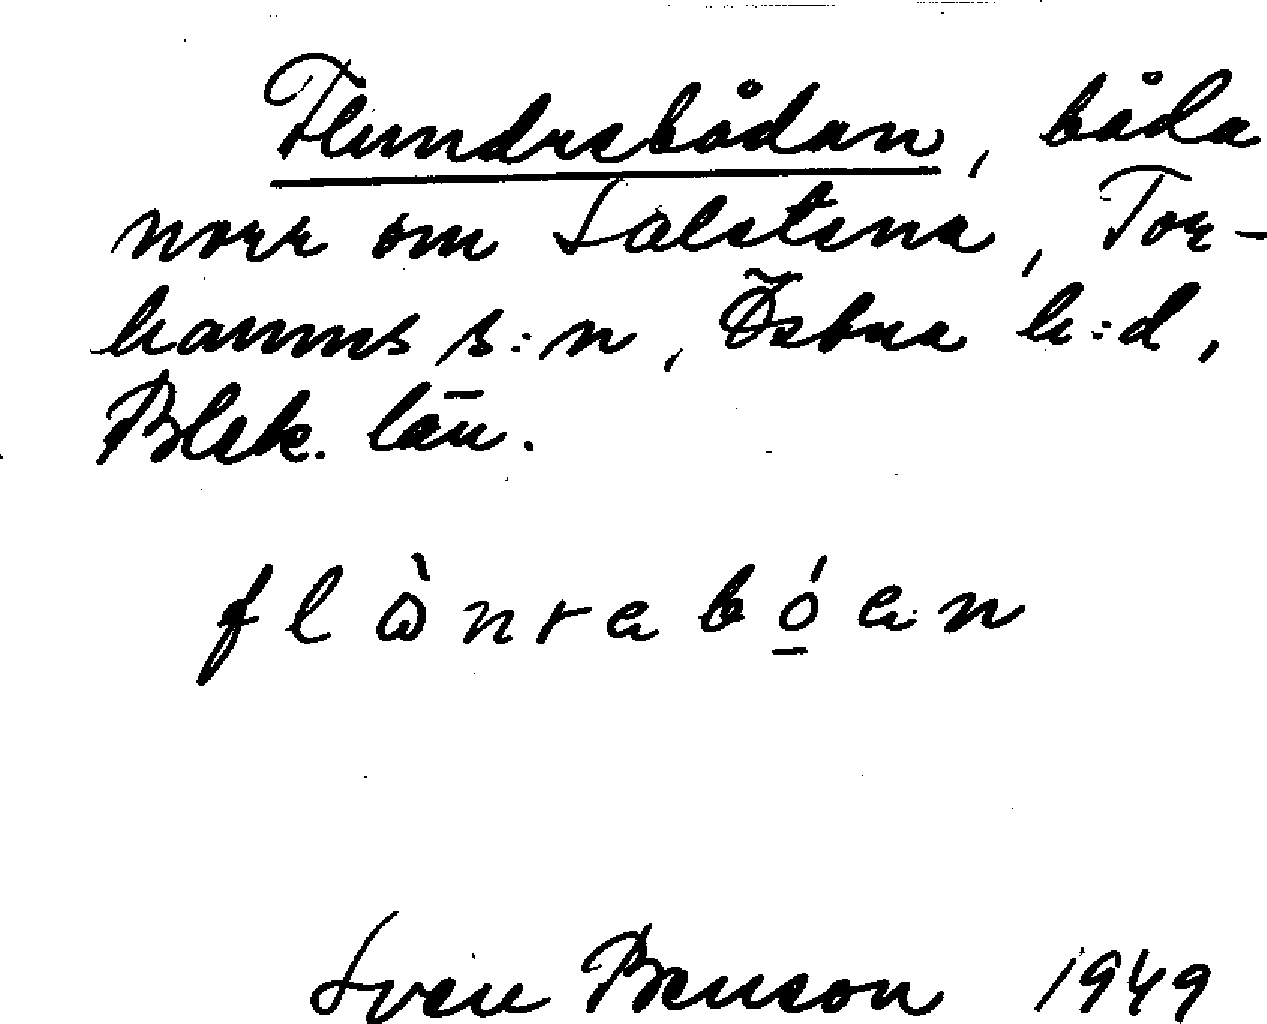 Flundrebådan, båda
norr om Salstena, Tor-
hamns s:n, Östra h:d,
Blek. län.
flὼnrabó̱an
Sven Benson 1949